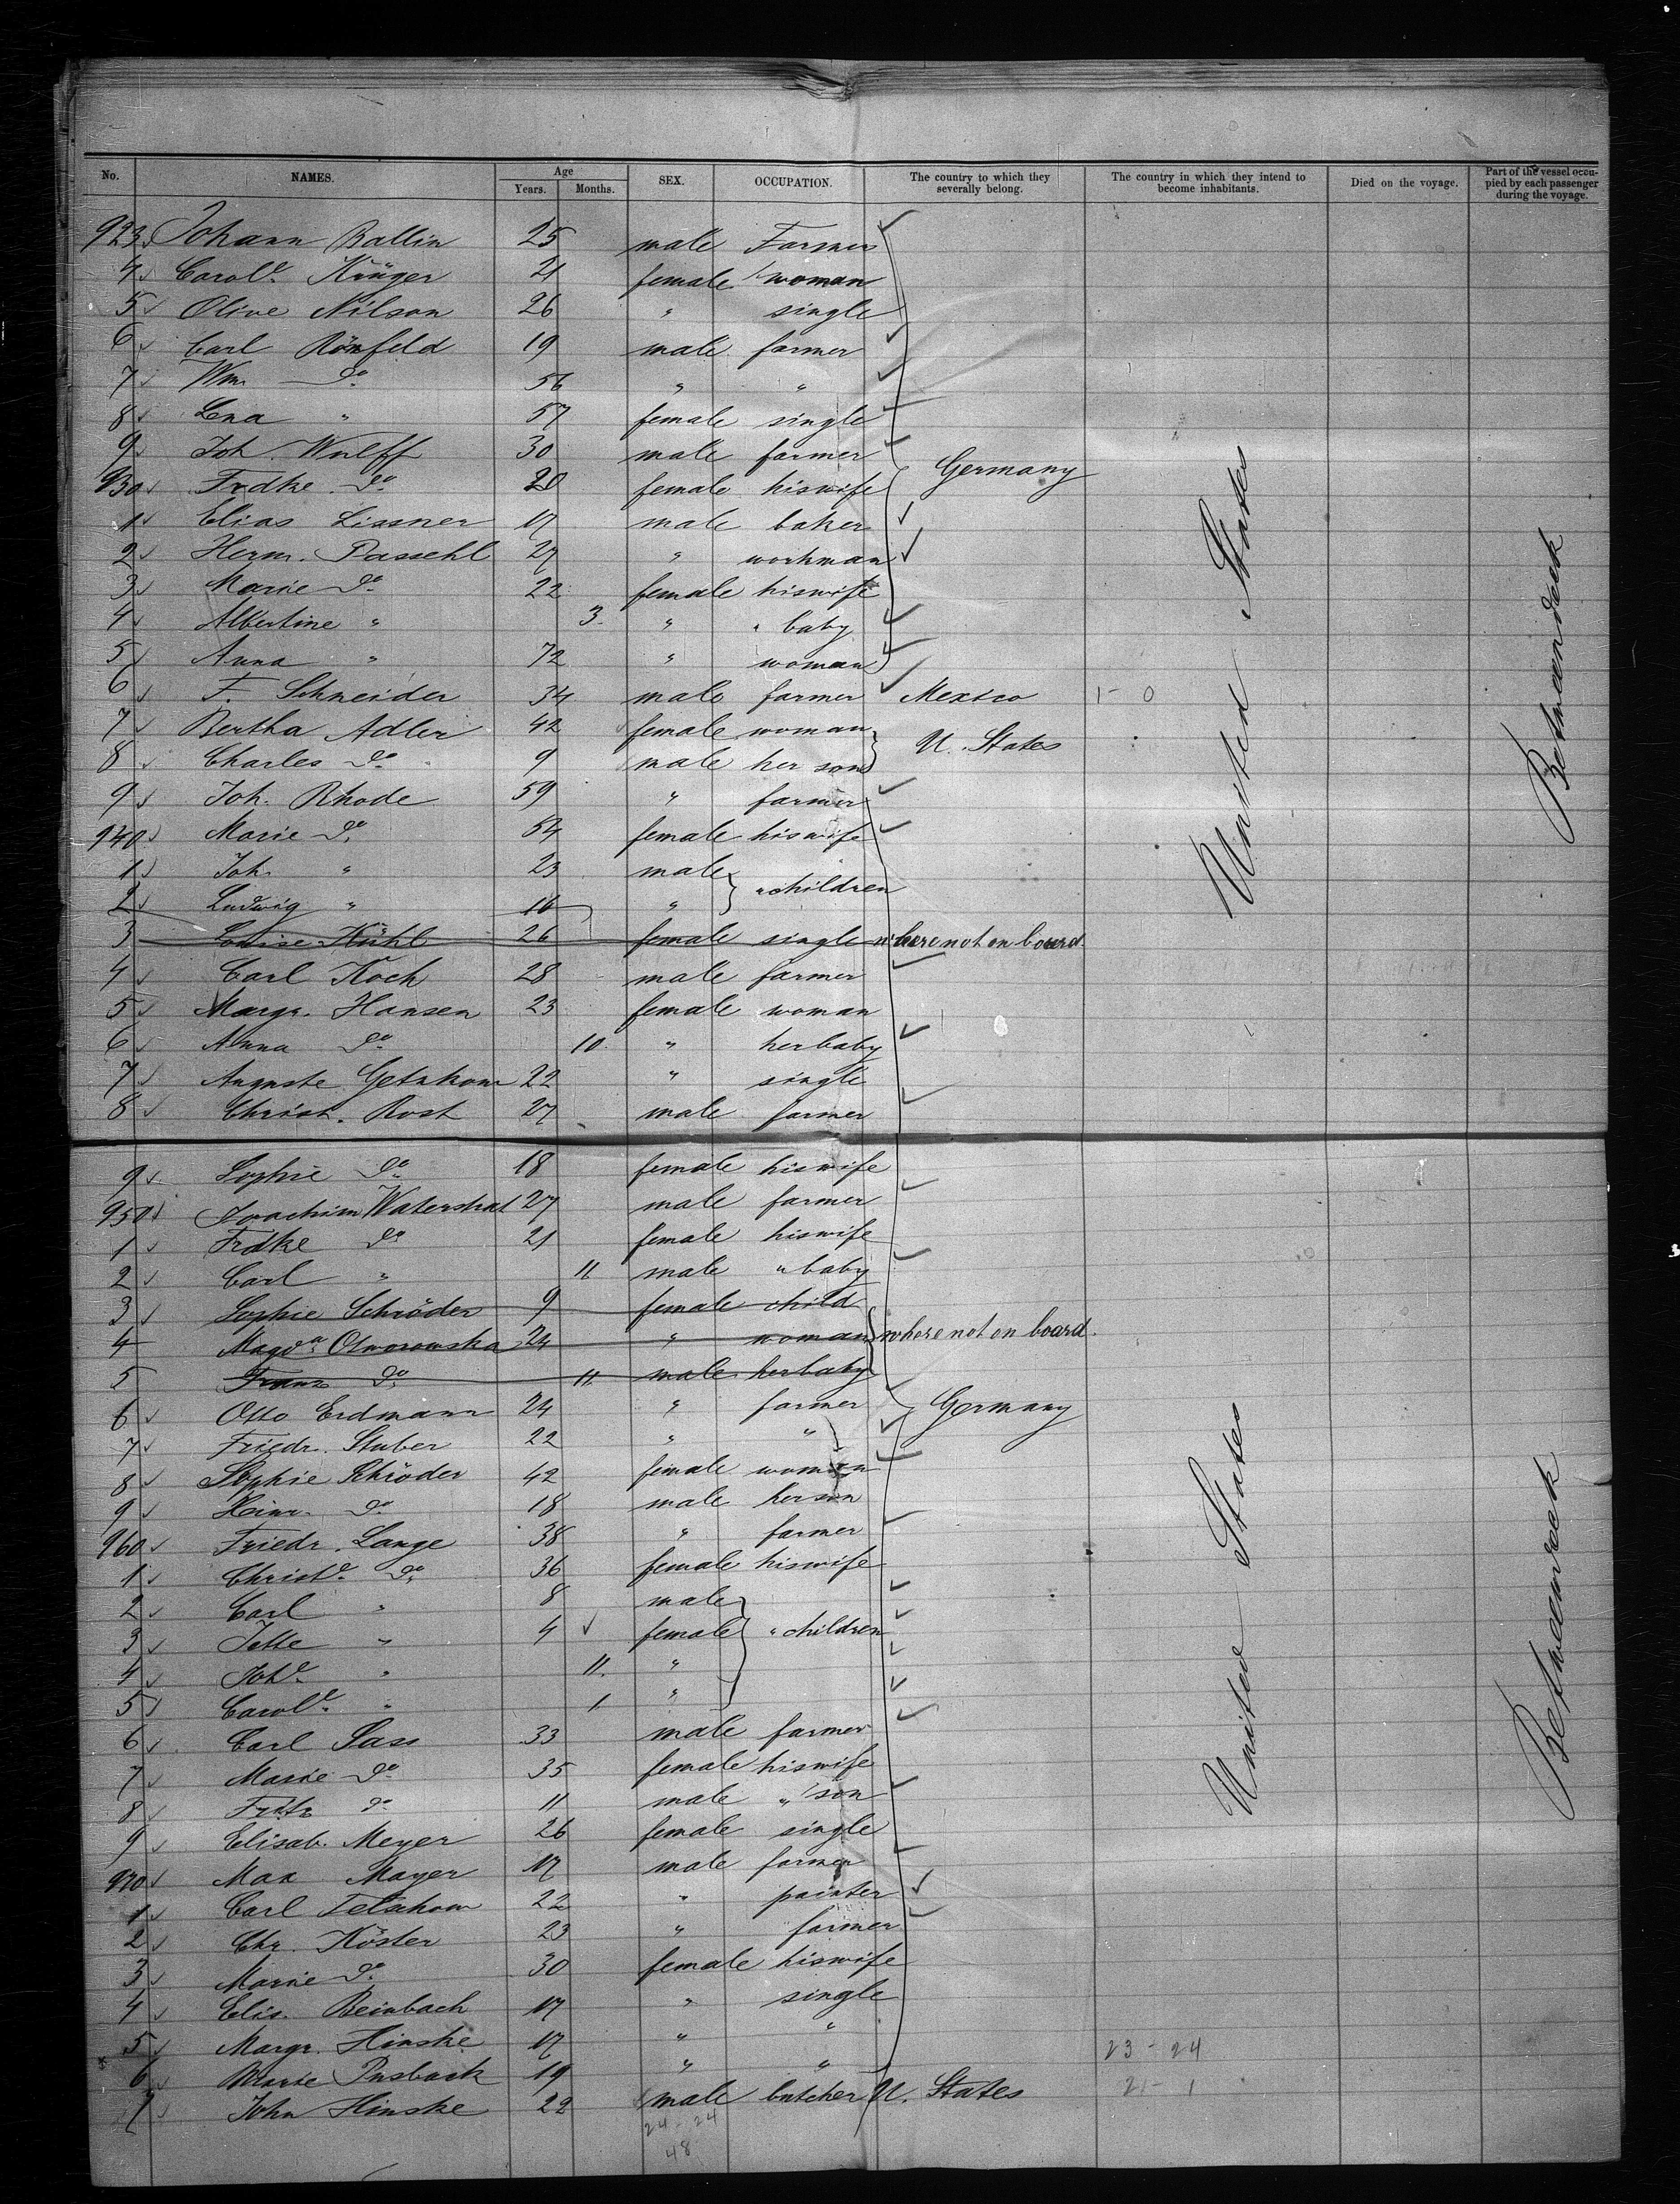 No. NAMES. Age Years. Months. SEX. OCCUPATION. The country to which they severally belong. The country in which they intend to become inhabitants. Died on the voyage. Part of the vessel occupied by each passenger during the voyage.
923 Johann Ballin 25 male Farmer
4 Carole. Krüger 21 female woman
5 Olive Nilson 26 " single
6 Carl Rönfeld 19 male farmer
7 Wm. do 56 " "
8 Lena " 57 female single
9 Joh. Wulff 30 male farmer
930 Frdke. do 20 female his wife Germany
1 Elias Lissner 17 male baker
2 Herm. Passehl 27 " workman
3 Marie do 22 female his wife
4 Albertine " 3. " " baby
5 Anna " 72 " woman
6 F. Schneider 34 male farmer Mexico 1 - 0
7 Bertha Adler 42 female woman
8 Charles do 9 male her son U. States
9 Joh. Rhode 59 " farmer
940 Marie do 54 female his wife
1 Joh. " 23 male
2 Ludwig " 16 " " children
3 Louise Kühl 26 female single where not on board.
4 Carl Koch 28 male farmer
5 Margr. Hansen 23 female woman
6 Anna do 10. " her baby
7 Auguste 22 " single
8 Christ. Rost 27 male farmer
9 Sophie do 18 female his wife
950 Joachim Waterstrat 27 male farmer
1 Frdke do 21 female his wife
2 Carl " 11 male " baby
3 Sophie Schröder 9 female child
4 Magda Otworowska 24 " woman where not on board.
5 Franz do 11. male her baby
6 Otto Erdmann 24 " farmer Germany
7 Friedr. Stuber 22 " "
8 Sophie Schröder 42 female woman
9 Heinr. do 18 male her son
960 Friedr. Lange 38 " farmer
1 Christe. do 36 female his wife
2 Carl " 8 male
3 Jette " 4 female " children
4 Johe. " 11. "
5 Carole. " 1 "
6 Carl Sass 33 male farmer
7 Marie do 35 female his wife
8 Fritz do 11 male " son
9 Elisab. Meyer 26 female single
970 Max Mayer 17 male farmer
1 Carl 22 " painter
2 Chr. Köster 23 " farmer
3 Marie do 30 female his wife
4 Elis. Beinbach 17 " single
5 Margr. Hinske 17 " " 23 - 24
6 Marie 19 " " 21 - 1
7 John Hinske 22 male butcher U. States
24 - 24
48
United States
United States
Betweendeck
Betweendeck